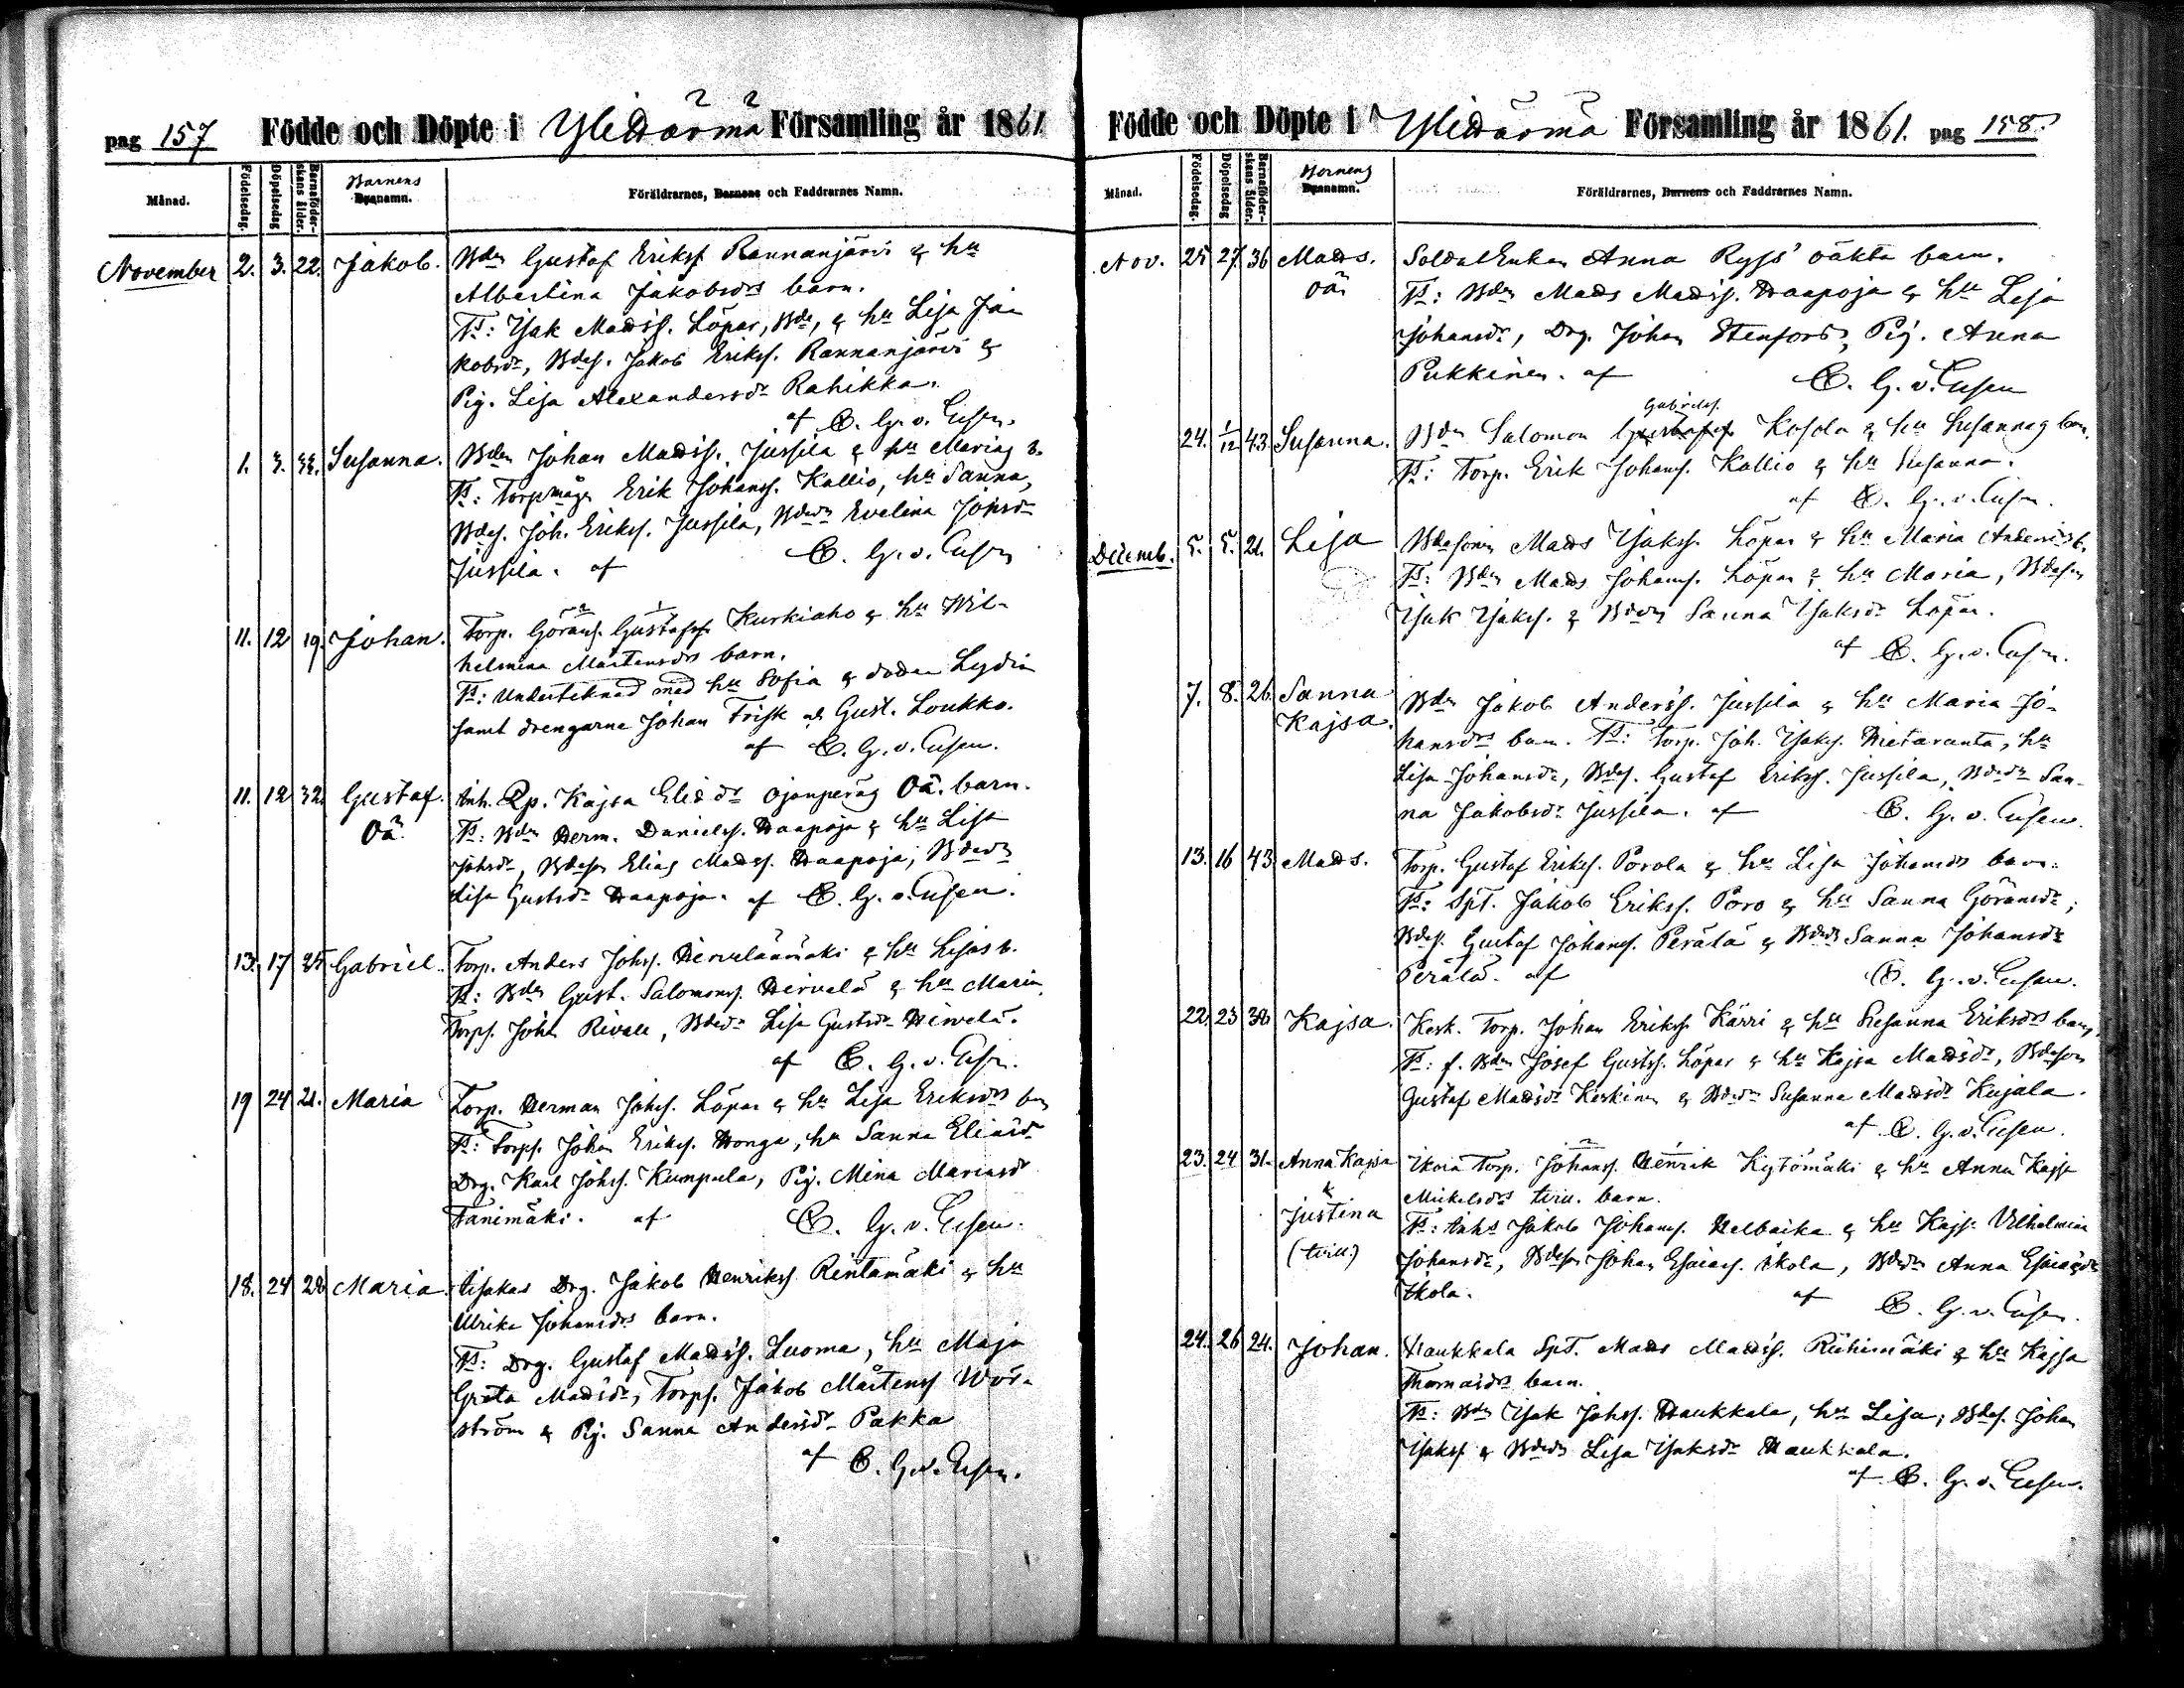 pag 157 Födde och Döpte i Ylihärmä Församling år 1861
Månad. Födelsedag. Döpelsedag Barnaföder-skans ålder. Barnens Byanamn. Föräldrarnes, Barnens och Faddrarnes Namn.
November 2. 3. 22. Jakob. Bdn Gustaf Erikss Rannanjärvi & hu
Albertina Jakobsdrs barn.
Tt: Isak Madss. Löpar, Bde, & hu Lisa Ja-
kobsdr, Bdes. Jakob Erikss. Rannanjärvi &
Pig. Lisa Alexandersdr Rahikka.
af C. G. v. Essen.
1. 3. Susanna. Bden Johan Madss. Jussila & hu Marias b.
Tt: Torpmåg Erik Johanss. Kallio, hu Sanna,
Bdes. Joh. Erikss. Jussila, Bdedr Evelina
Jussila. af C. G. v. Essen
11. 12 19. Johan. Torp. Görans. Gustafss. Kurkiaho & hu Wil-
helmina Mårtensdrs barn.
Tt: Undertecknad med hu Sofia & Lydia
samt drengarne Johan Frisk och Gust. Loukko.
af C. G. v. Essen.
11. 12 32. Gustaf. Inh. Kajsa Eliedr Ojanperäs Oä. barn.
Oä. Tt: Bdn Herm. Danielss. Haapoja & hu Lisa
Johsdr, Bdeson Elias Madss. Haapoja, Bdedr
Lisa Gustsdr Haapoja. af C. G. v. Essen.
13. 17 Gabriel. Torp. Anders Johss. Hirveläämäki & hu Lisas b.
Tt: Bdn Gust. Salomonss. Hirvelä & hu Maria,
Torps. Joh. Bdedr Lisa Gustsdr Hirvelä.
af C. G. v. Essen.
19 24 21. Maria Torp. Herman Johss. Löpar & hu Lisa Eriksdrs barn
Tt: Torps. Johan Erikss. Honga, hu Sanna Eliaedr
Drg. Karl Johss. Kumpula, Pig. Mina Mariasdr
Tanimäki. af C. G. v. Essen.
18. 24 28 Maria. Drg. Jakob Henrikss. Rintamäki & hu
Ulrika Johansdrs barn.
Tt: Drg. Gustaf Madss. Luoma, hu Maja
Greta Madsdr, Torps. Jakob Mårtenss
ström & Pig. Sanna Andersdr Pakka
af C. G. v. Essen.
Födde och Döpte i Ylihärmä Församling år 1861. pag 158.
Månad. Födelsedag. Döpelsedag Barnaföder-skans ålder. Barnens Byanamn. Föräldrarnes, Barnens och Faddrarnes Namn.
Nov. 25 27. 36 Mads. SoldatEnkan Anna Ryss' oäkta barn.
oä. Tt: Bdn Mads Madss. Haapoja & hu Lisa
Johansdr, Drg. Johan Stenfors, Pig. Anna
Pukkinen. af C. G. v. Essen
Gabrielss.
24. 1/12 43 Susanna. Bdn Salomon Gustafss Kosola & hu Susannas barn.
Tt: Torp. Erik Johanss. Kallio & hu Susanna.
af C. G. v. Essen.
Decemb. 5. 5. 21. Lisa Bdesonen Mads Isakss. Löpar & hu Maria Andersdrs b.
Tt: Bdn Mads Johanss. Löpar & hu Maria, Bdeson
Isak Isakss. & Bdedr Sanna Isaksdr Löpar.
af C. G. v. Essen.
7. 8. 26. Sanna Bdn Jakob Anderss. Jussila & hu Maria Jo-
Kajsa. hansdrs barn. Tt: Torp. Joh. Isakss. Hietaranta, hu
Lisa Johansdr, Bdes. Gustaf Erikss. Jussila, Bdedr San-
na Jakobsdr Jussila. af C. G. v. Essen.
13. 16 43 Mads. Torp. Gustaf Erikss. Porola & hu Lisa Johansdrs barn.
Tt: Spt. Jakob Erikss. Poro & hu Sanna Göransdr,
Bdes. Gustaf Johanss. Perälä & Bdedr Sanna Johansdr
Perälä. af C. G. v. Essen.
22. 23 Kajsa. Kesk. Torp. Johan Erikss. Kärri & hu Susanna Eriksdrs barn,
Tt: f. Bdn Josef Gustss. Löpar & hu Kajsa Madsdr, Bdeson
Gustaf Keskinen & Bdedr Susanna Madsdr Kujala.
af C. G. v. Essen.
23. 24 31. Anna Kajsa Ekola Torp. Johanss. Henrik Kytömäki & hu Anna Kajsa
& Mickelsdrs tvill. barn.
Justina Tt: Inhs Jakob Johanss. & hu Kajsa Vilhelmina
(tvill.) Johansdr, Bdeson Johan Esaiass. Ekola, Bdedr Anna Esaiaedr
Ekola. af C. G. v. Essen.
24. 26 24. Johan. Haukkala Spt. Mads Madss. Riihimäki & hu Kajsa
Thomasdrs barn.
Tt: Bdn Isak Johss. Haukkala, hu Lisa, Bdes. Johan
Isakss & Bdedr Lisa Isaksdr Haukkala.
af C. G. v. Essen.